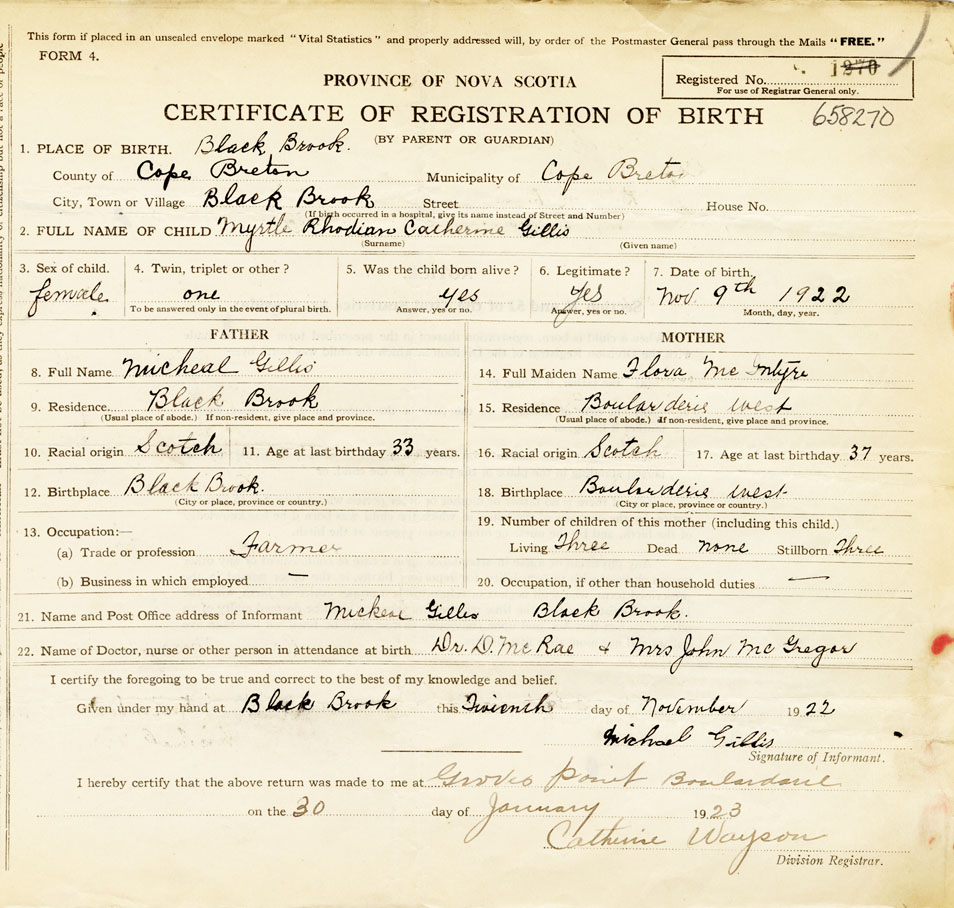 This form if placed in an unsealed envelope marked "Vital Statistics" and properly addressed will, by order of the Postmaster General pass through the Mails "FREE."
FORM 4.
PROVINCE OF NOVA SCOTIA
Registered No. 1270
For use of Registrar General only.
CERTIFICATE OF REGISTRATION OF BIRTH 658270
(BY PARENT OR GUARDIAN)
1. PLACE OF BIRTH. Black Brook.
County of Cope Breton Municipality of Cope Breton
City, Town or Village Black Brook Street House No.
(If birth occurred in a hospital, give its name instead of Street and Number)
2. FULL NAME OF CHILD Myrtle Rhodian Catherine Gillis
(Surname) (Given name)
3. Sex of child. 4. Twin, triplet or other? 5. Was the child born alive? 6. Legitimate? 7. Date of birth.
female. one yes yes Nov 9th 1922
To be answered only in the event of plural birth. Answer, yes or no. Answer, yes or no. Month, day, year.
FATHER MOTHER
8. Full Name Micheal Gillis 14. Full Maiden Name Flora Mc Intyre
9. Residence Black Brook 15. Residence Boularderie west
(Usual place of abode.) If non-resident, give place and province. (Usual place of abode.) If non-resident, give place and province.
10. Racial origin Scotch 11. Age at last birthday 33 years. 16. Racial origin Scotch 17. Age at last birthday 37 years.
12. Birthplace Black Brook. 18. Birthplace Boularderie west
(City or place, province or country.) (City or place, province or country.)
13. Occupation:— 19. Number of children of this mother (including this child.)
(a) Trade or profession Farmer Living Three Dead none Stillborn Three
(b) Business in which employed — 20. Occupation, if other than household duties —
21. Name and Post Office address of Informant Mickeal Gillis Black Brook.
22. Name of Doctor, nurse or other person in attendance at birth Dr. D. McRae & Mrs John McGregor
I certify the foregoing to be true and correct to the best of my knowledge and belief.
Given under my hand at Black Brook this day of November 1922
Michael Gillis
Signature of Informant.
I hereby certify that the above return was made to me at Groves Point Boulardarie
on the 30 day of January 1923
Catherine Wayson
Division Registrar.